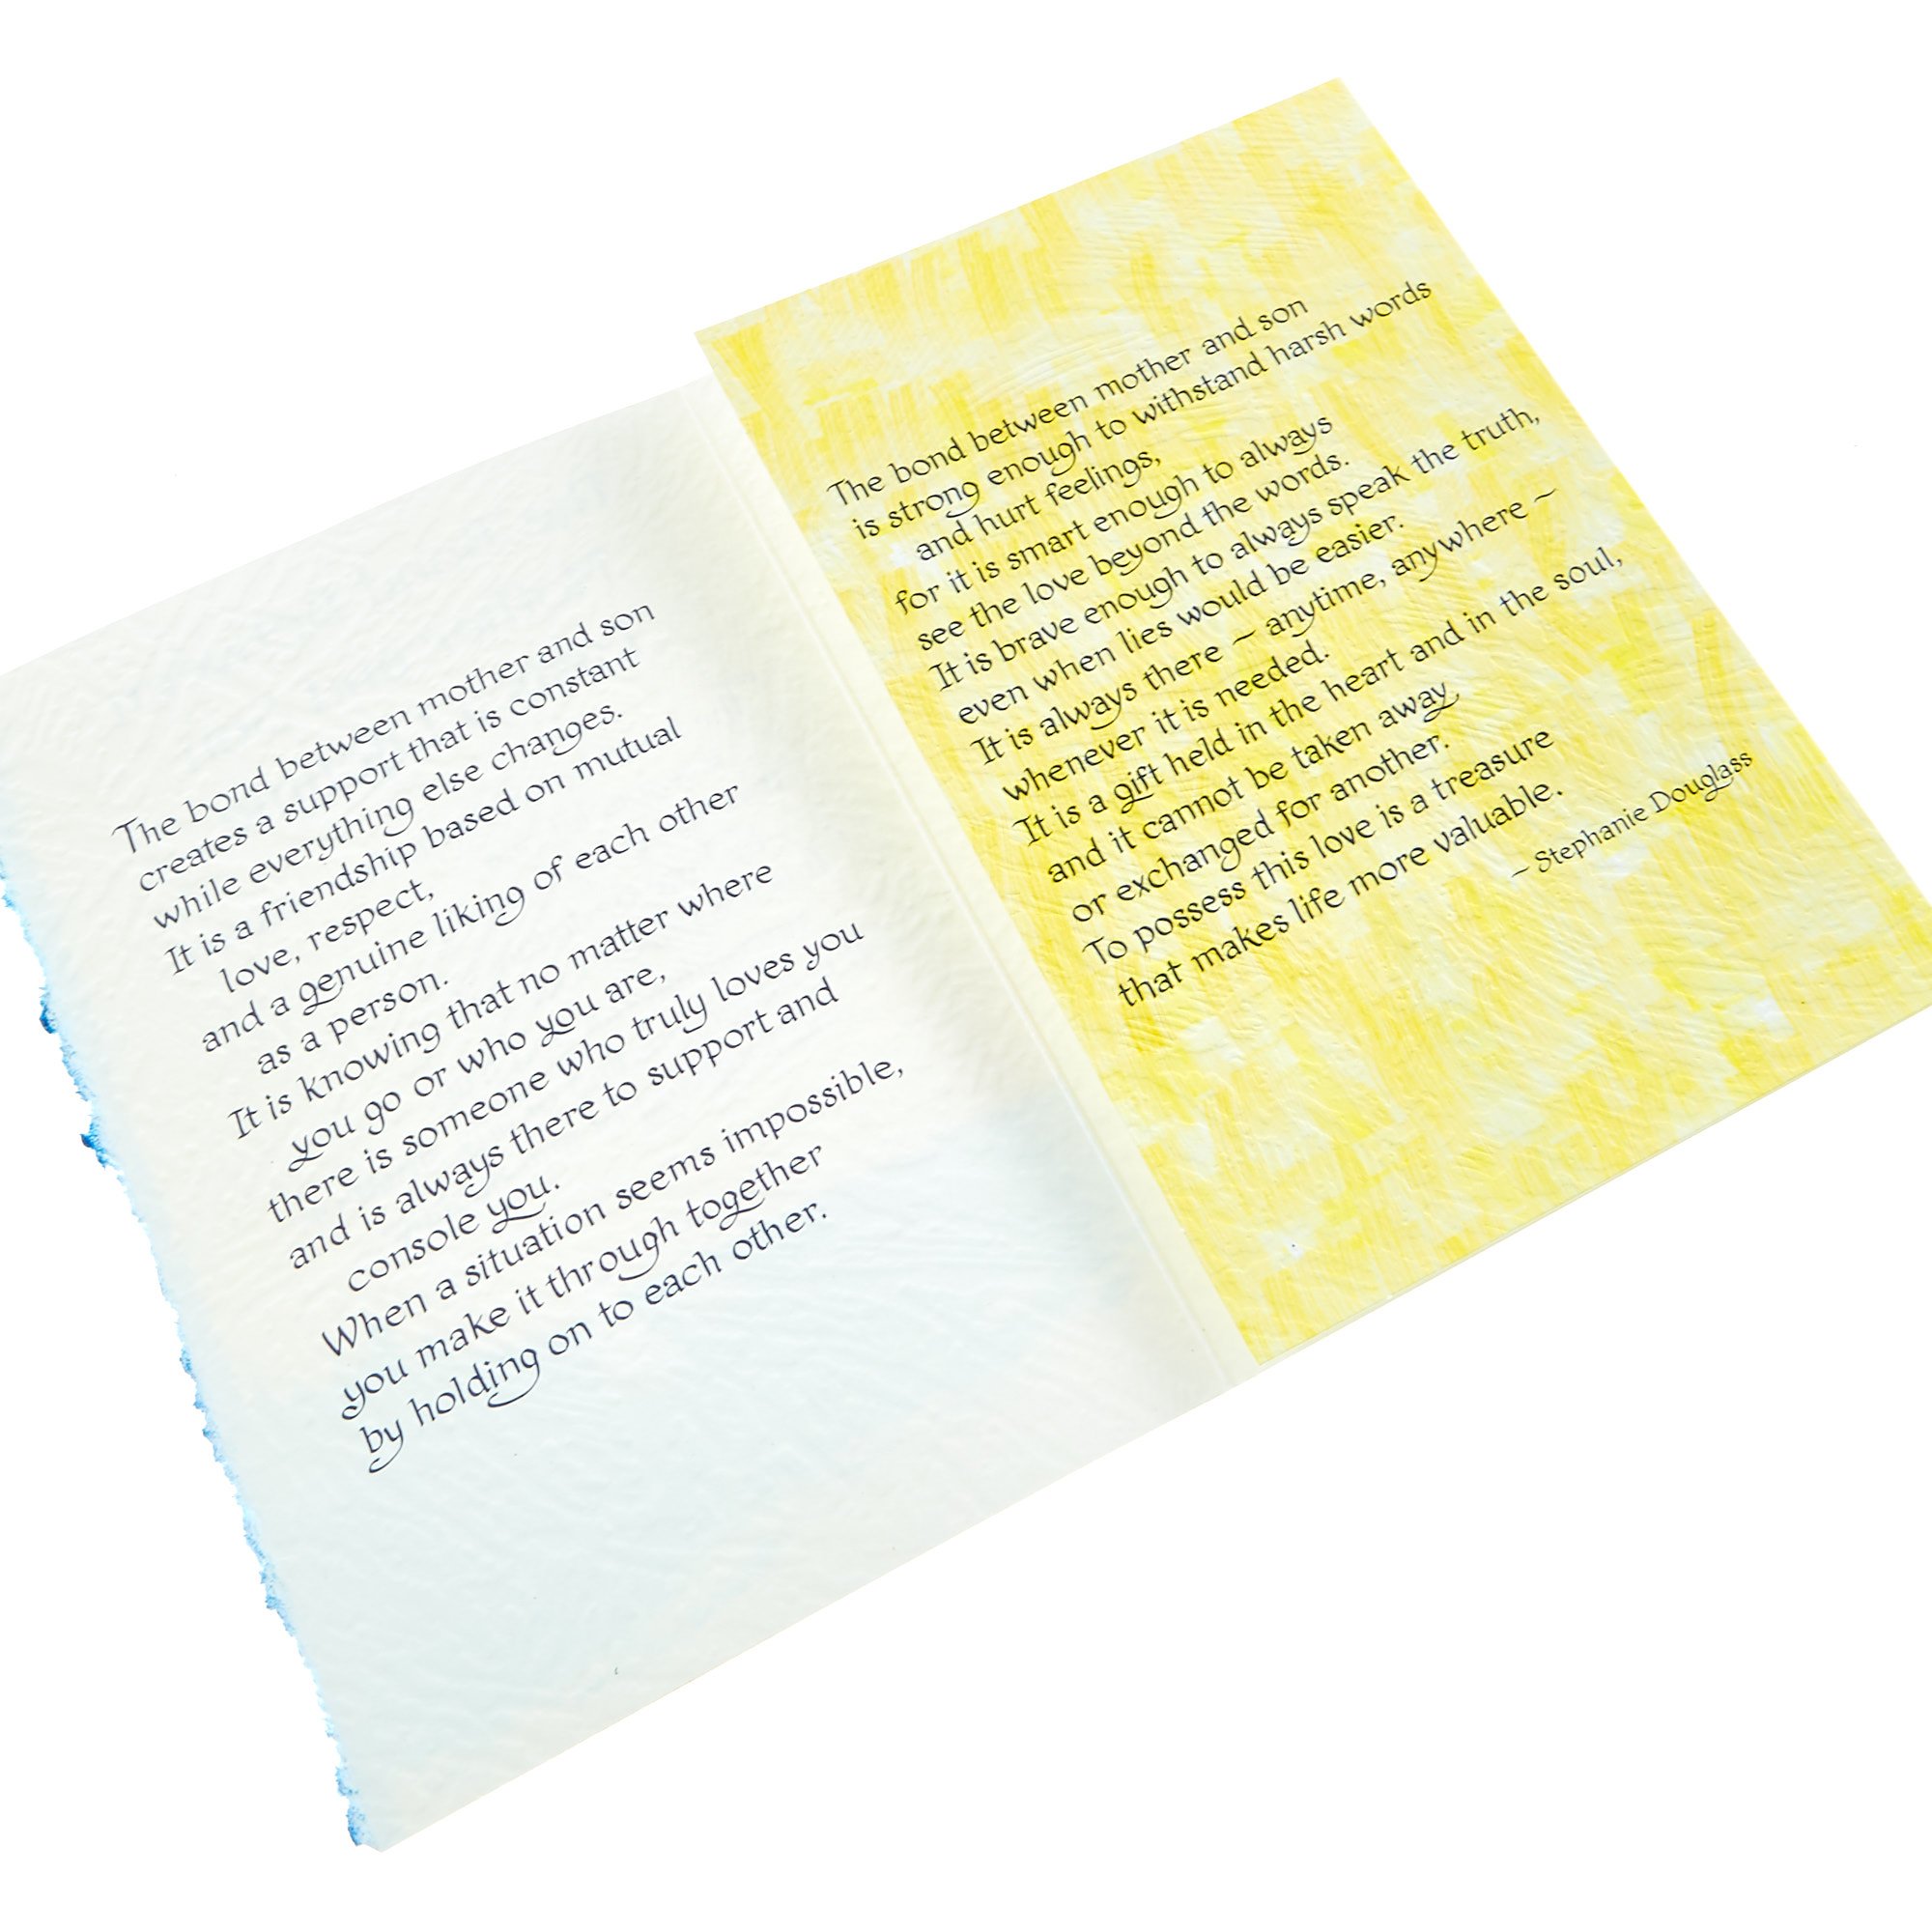 The bond between mother and son
creates a support that is constant
while everything else changes.
It is a friendship based on mutual
love, respect,
and a genuine liking of each other
as a person.
It is knowing that no matter where
you go or who you are,
there is someone who truly loves you
and is always there to support and
console you.
When a situation seems impossible,
you make it through together
by holding on to each other.
The bond between mother and son
is strong enough to withstand harsh words
and hurt feelings,
for it is smart enough to always
see the love beyond the words.
It is brave enough to always speak the truth,
even when lies would be easier.
It is always there ~ anytime, anywhere ~
whenever it is needed.
It is a gift held in the heart and in the soul,
and it cannot be taken away
or exchanged for another.
To possess this love is a treasure
that makes life more valuable.
~ Stephanie Douglass